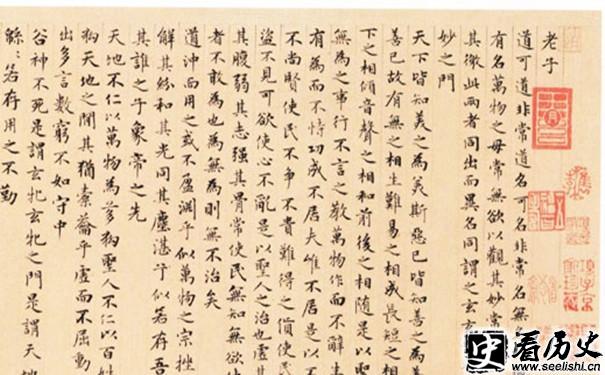 老子
道可道非常道名可名非常名無
有名萬物之母常無欲以觀其妙常
其徼此兩者同出而異名同謂之玄
妙之門
天下皆知美之為美斯惡已皆知善之為善
善已故有無之相生難易之相成長短之相
下之相傾音聲之相和前後之相隨是以聖
無為之事行不言之教萬物作而不辭生
有為而不恃功成不居夫唯不居是以不
不尚賢使民不爭不貴難得之貨使民
盜不見可欲使心不亂是以聖人之治也虛其
其腹弱其志强其骨常使民無知無欲使
者不敢為也為無為則無不治矣
道沖而用之或不盈淵乎似萬物之宗挫
解其紛和其光同其塵湛乎似若存吾
其誰之子象帝之先
天地不仁以萬物為芻狗聖人不仁以百姓
狗天地之間其猶橐籥乎虛而不屈動
出多言數窮不如守中
谷神不死是謂玄牝玄牝之門是謂天地
綿〻若存用之不勤
史 看历史
www.seelishi.cn